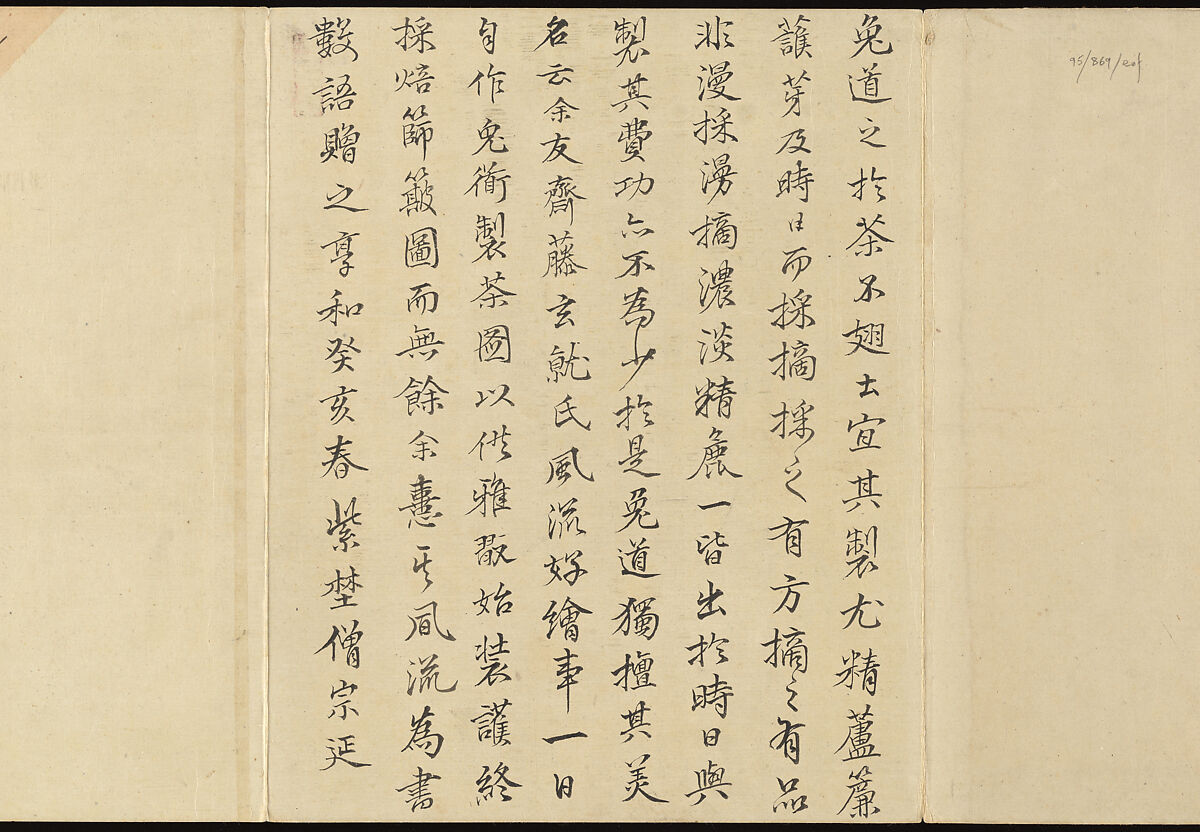 兎道之於茶不翅土宜其製尤精蘆簾
護芽及時日而採摘採之有方摘之有品
非漫採漫摘濃淡精麁一皆出於時日與
製其費功亦不為少於是兎道獨擅其美
名云余友齋藤玄就氏風流好繪事一日
自作兎衜製茶圖以供雅翫始裝護終
採焙篩簸圖而無餘余憙其風流為書
數語贈之享和癸亥春紫埜僧宗延
95/869/eof